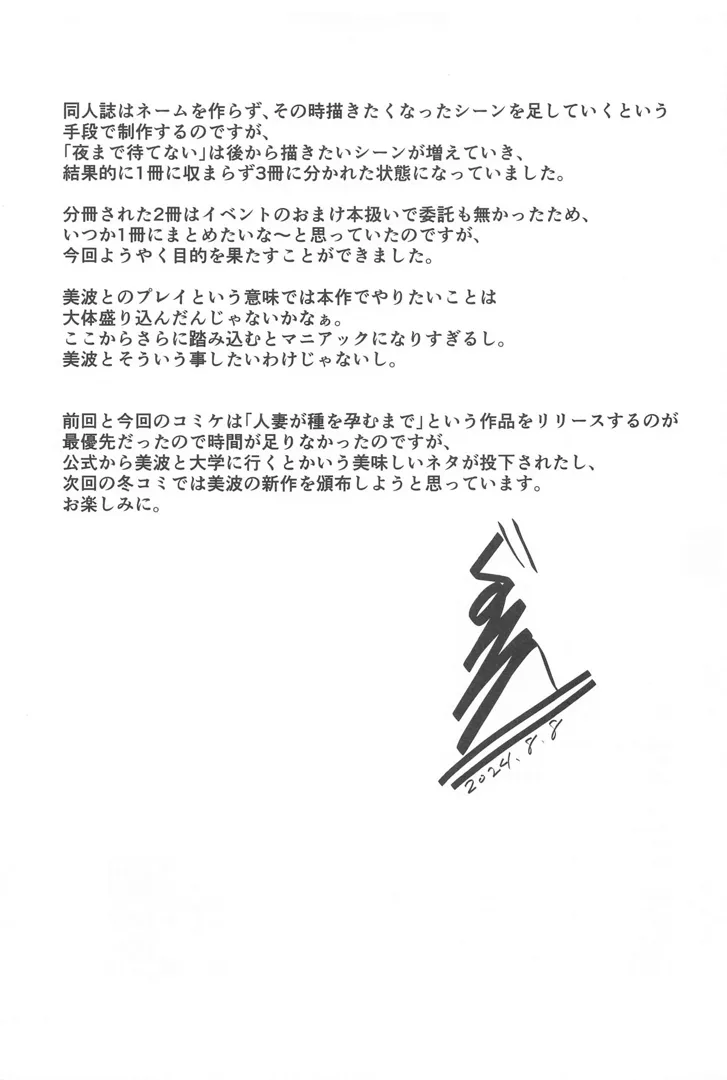 同人誌はネームを作らず、その時描きたくなったシーンを足していくという
手段で制作するのですが、
「夜まで待てない」は後から描きたいシーンが増えていき、
結果的に1冊に収まらず3冊に分かれた状態になっていました。
分冊された2冊はイベントのおまけ本扱いで委託も無かったため、
いつか1冊にまとめたいな～と思っていたのですが、
今回ようやく目的を果たすことができました。
美波とのプレイという意味では本作でやりたいことは
大体盛り込んだんじゃないかなぁ。
ここからさらに踏み込むとマニアックになりすぎるし。
美波とそういう事したいわけじゃないし。
前回と今回のコミケは「人妻が種を孕むまで」という作品をリリースするのが
最優先だったので時間が足りなかったのですが、
公式から美波と大学に行くとかいう美味しいネタが投下されたし、
次回の冬コミでは美波の新作を頒布しようと思っています。
お楽しみに。
2024.8.8